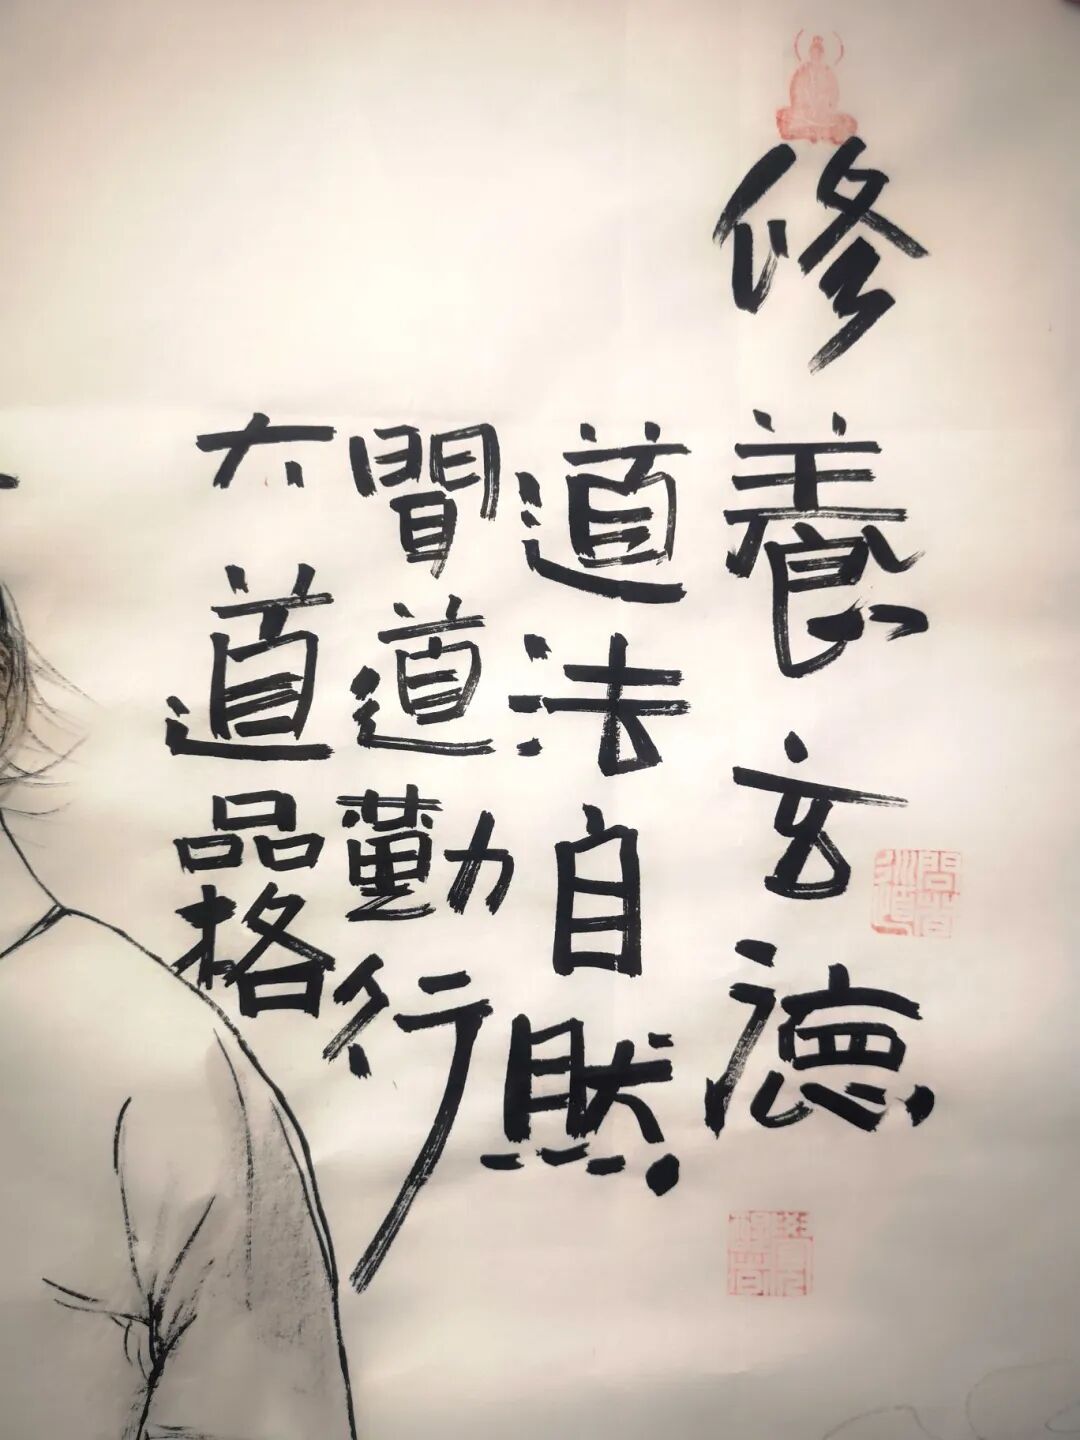 修養玄德
道法自然
聞道勤行
大道品格